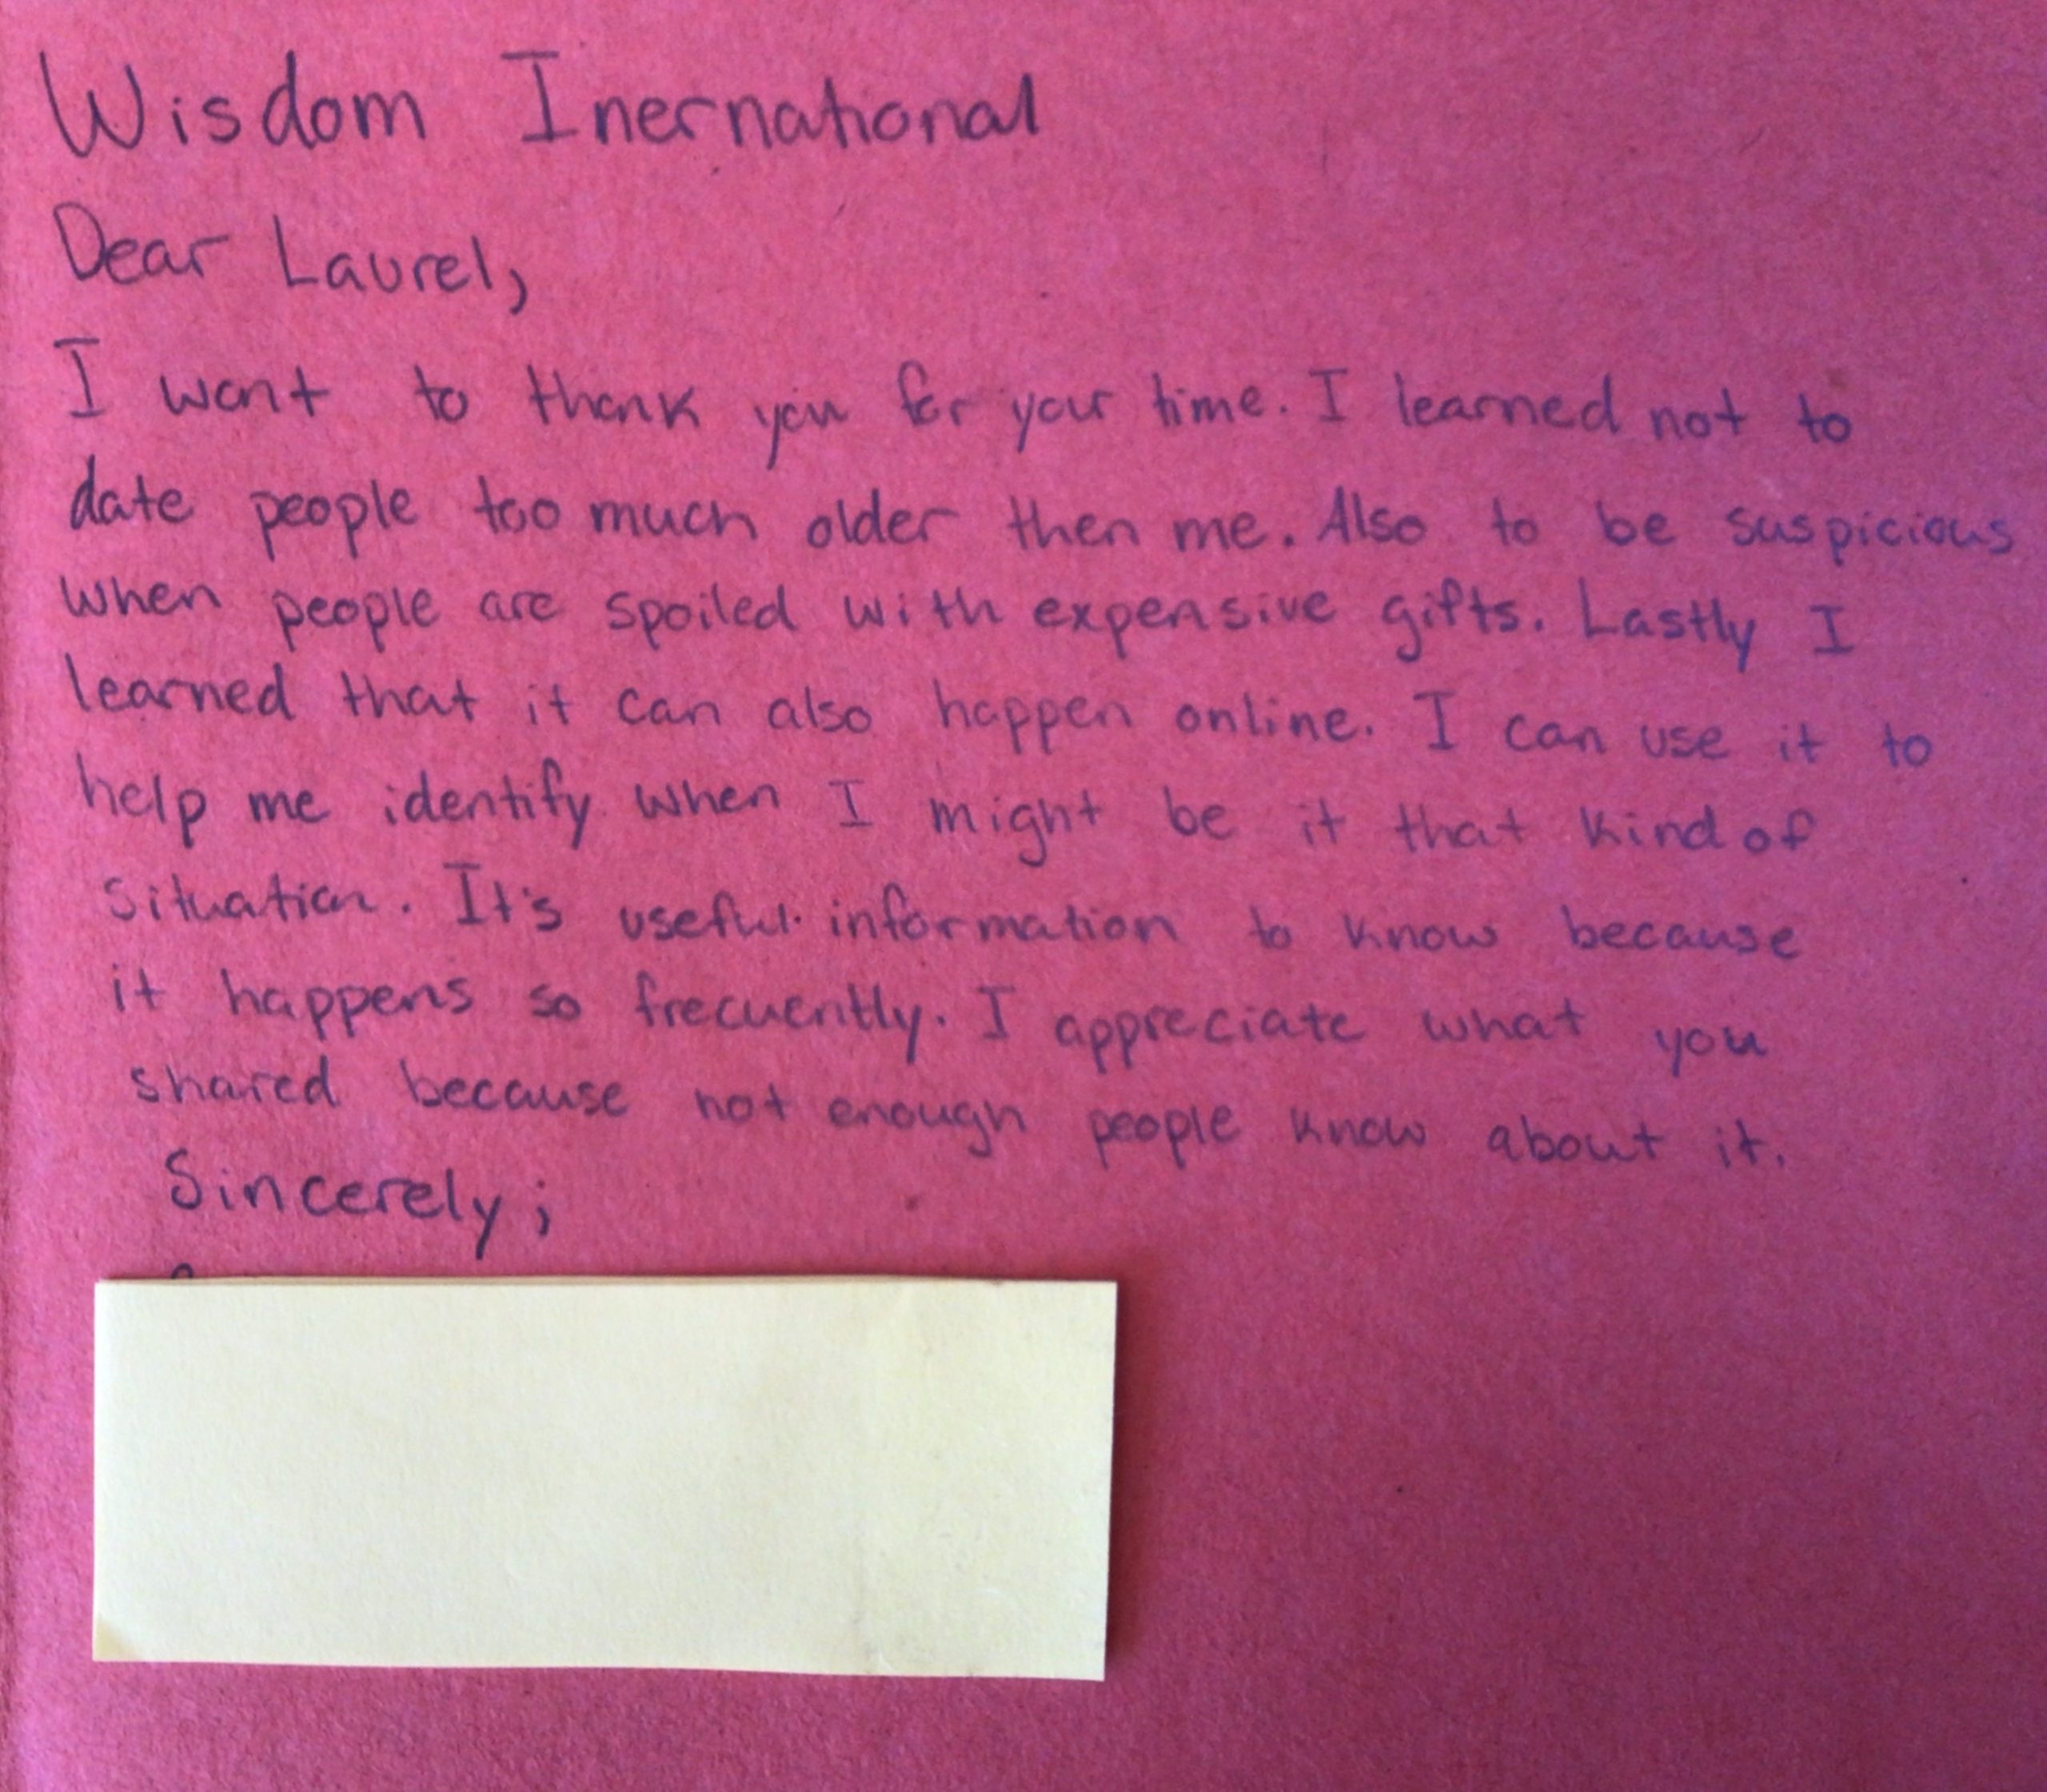 Wisdom Inernational
Dear Laurel,
I want to thank you for your time. I learned not to
date people too much older then me. Also to be suspicious
when people are spoiled with expensive gifts. Lastly I
learned that it can also happen online. I can use it to
help me identify when I might be it that kind of
situation. It's useful information to know because
it happens so frecuently. I appreciate what you
shared because not enough people know about it.
Sincerely;